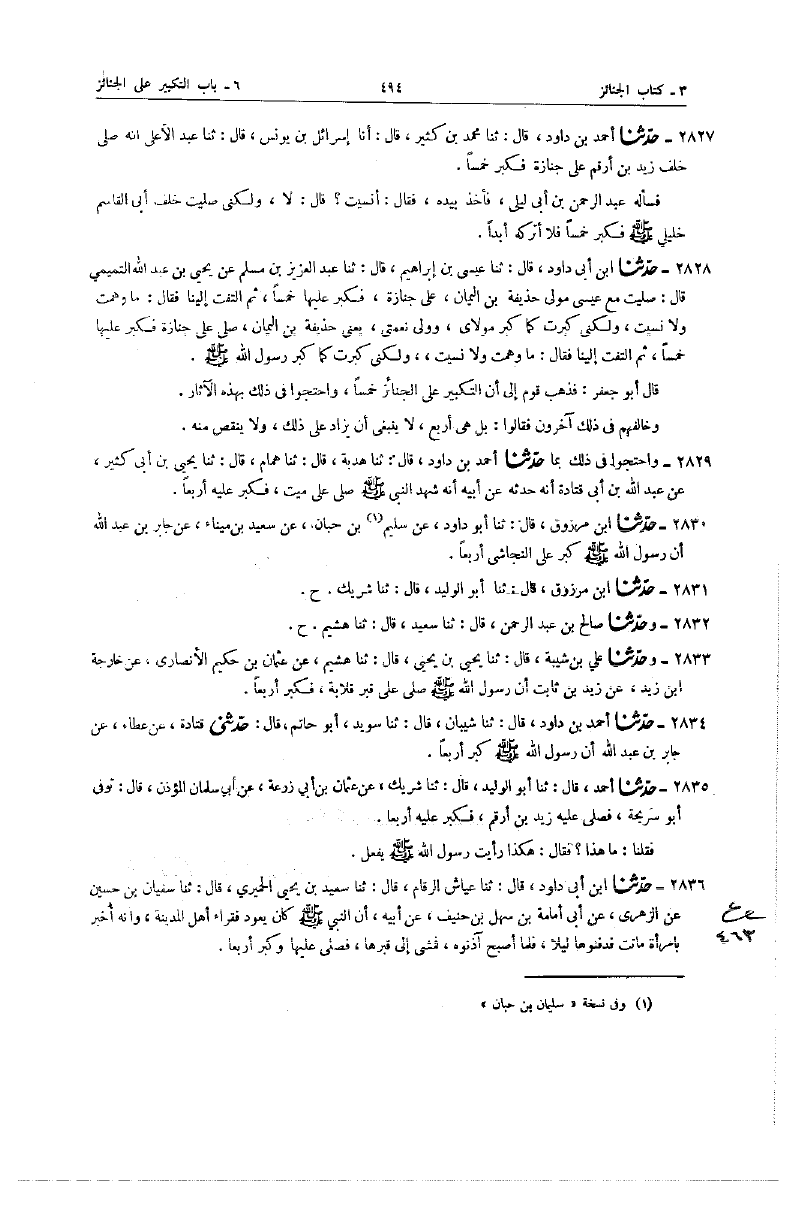 ٣ ـ كتاب الجنائز ٤٩٤ ٦ ـ باب التكبير على الجنائز
٢٨٢٧ ـ حدثنا أحمد بن داود ، قال : ثنا محمد بن كثير ، قال : أنا إسرائيل بن يونس ، قال : ثنا عبد الأعلى انه صلى
خلف زيد بن أرقم على جنازة فكبر خمساً .
فسأله عبد الرحمن بن أبى ليلى ، فأخذ بيده ، فقال : أنسيت ؟ قال : لا ، ولكنى صليت خلف أبى القاسم
خليلي ﷺ فكبر خمساً فلا أتركه أبداً .
٢٨٢٨ ـ حدثنا ابن أبى داود ، قال : ثنا عيسى بن إبراهيم ، قال : ثنا عبد العزيز بن مسلم عن يحيى بن عبد الله التميمي
قال : صليت مع عيسى مولى حذيفة بن اليمان ، على جنازة ، فكبر عليها خمساً ، ثم التفت إلينا فقال : ما وهمت
ولا نسيت ، ولكنى كبرت كما كبر مولاى ، وولى نعمتى ، يعنى حذيفة بن اليمان ، صلى على جنازة فكبر عليها
خمساً ، ثم التفت إلينا فقال : ما وهمت ولا نسيت ، ، ولكنى كبرت كما كبر رسول الله ﷺ .
قال أبو جعفر : فذهب قوم إلى أن التكبير على الجنائز خمساً ، واحتجوا فى ذلك بهذه الآثار .
وخالفهم فى ذلك آخرون فقالوا : بل هى أربع ، لا ينبغى أن يزاد على ذلك ، ولا ينقص منه .
٢٨٢٩ ـ واحتجوا فى ذلك بما حدثنا أحمد بن داود ، قال : ثنا هدبة ، قال : ثنا همام ، قال : ثنا يحيى بن أبى كثير ،
عن عبد الله بن أبى قتادة أنه حدثه عن أبيه أنه شهد النبي ﷺ صلى على ميت ، فكبر عليه أربعاً .
٢٨٣٠ ـ حدثنا ابن مرزوق ، قال : ثنا أبو داود ، عن سليم(١) بن حبان ، عن سعيد بن ميناء ، عن جابر بن عبد الله
أن رسول الله ﷺ كبر على النجاشى أربعاً .
٢٨٣١ ـ حدثنا ابن مرزوق ، قال : ثنا أبو الوليد ، قال : ثنا شريك . ح .
٢٨٣٢ ـ وحدثنا صالح بن عبد الرحمن ، قال : ثنا سعيد ، قال : ثنا هشيم . ح .
٢٨٣٣ ـ وحدثنا علي بن شيبة ، قال : ثنا يحيى بن يحيى ، قال : ثنا هشيم ، عن عثمان بن حكيم الأنصارى ، عن خارجة
ابن زيد ، عن زيد بن ثابت أن رسول الله ﷺ صلى على قبر قلابة ، فكبر أربعاً .
٢٨٣٤ ـ حدثنا أحمد بن داود ، قال : ثنا شيبان ، قال : ثنا سويد ، أبو حاتم ، قال : حدثنى قتادة ، عن عطاء ، عن
جابر بن عبد الله أن رسول الله ﷺ كبر أربعاً .
٢٨٣٥ ـ حدثنا أحمد ، قال : ثنا أبو الوليد ، قال : ثنا شريك ، عن عثمان بن أبي زرعة ، عن أبي سلمان المؤذن ، قال : توفى
أبو سريحة ، فصلى عليه زيد بن أرقم ، فكبر عليه أربعا .
فقلنا : ما هذا ؟ فقال : هكذا رأيت رسول الله ﷺ يفعل .
٢٨٣٦ ـ حدثنا ابن أبى داود ، قال : ثنا عياش الرقام ، قال : ثنا سعيد بن يحيى الحميري ، قال : ثنا سفيان بن حسين
عن الزهرى ، عن أبى أمامة بن سهل بن حنيف ، عن أبيه ، أن النبي ﷺ كان يعود فقراء أهل المدينة ، وانه أخبر
بامرأة ماتت فدفنوها ليلا ، فلما أصبح آذنوه ، فمشى إلى قبرها ، فصلى عليها وكبر أربعا .
٤٦٣
(١) وفى نسخة « سليمان بن حبان »